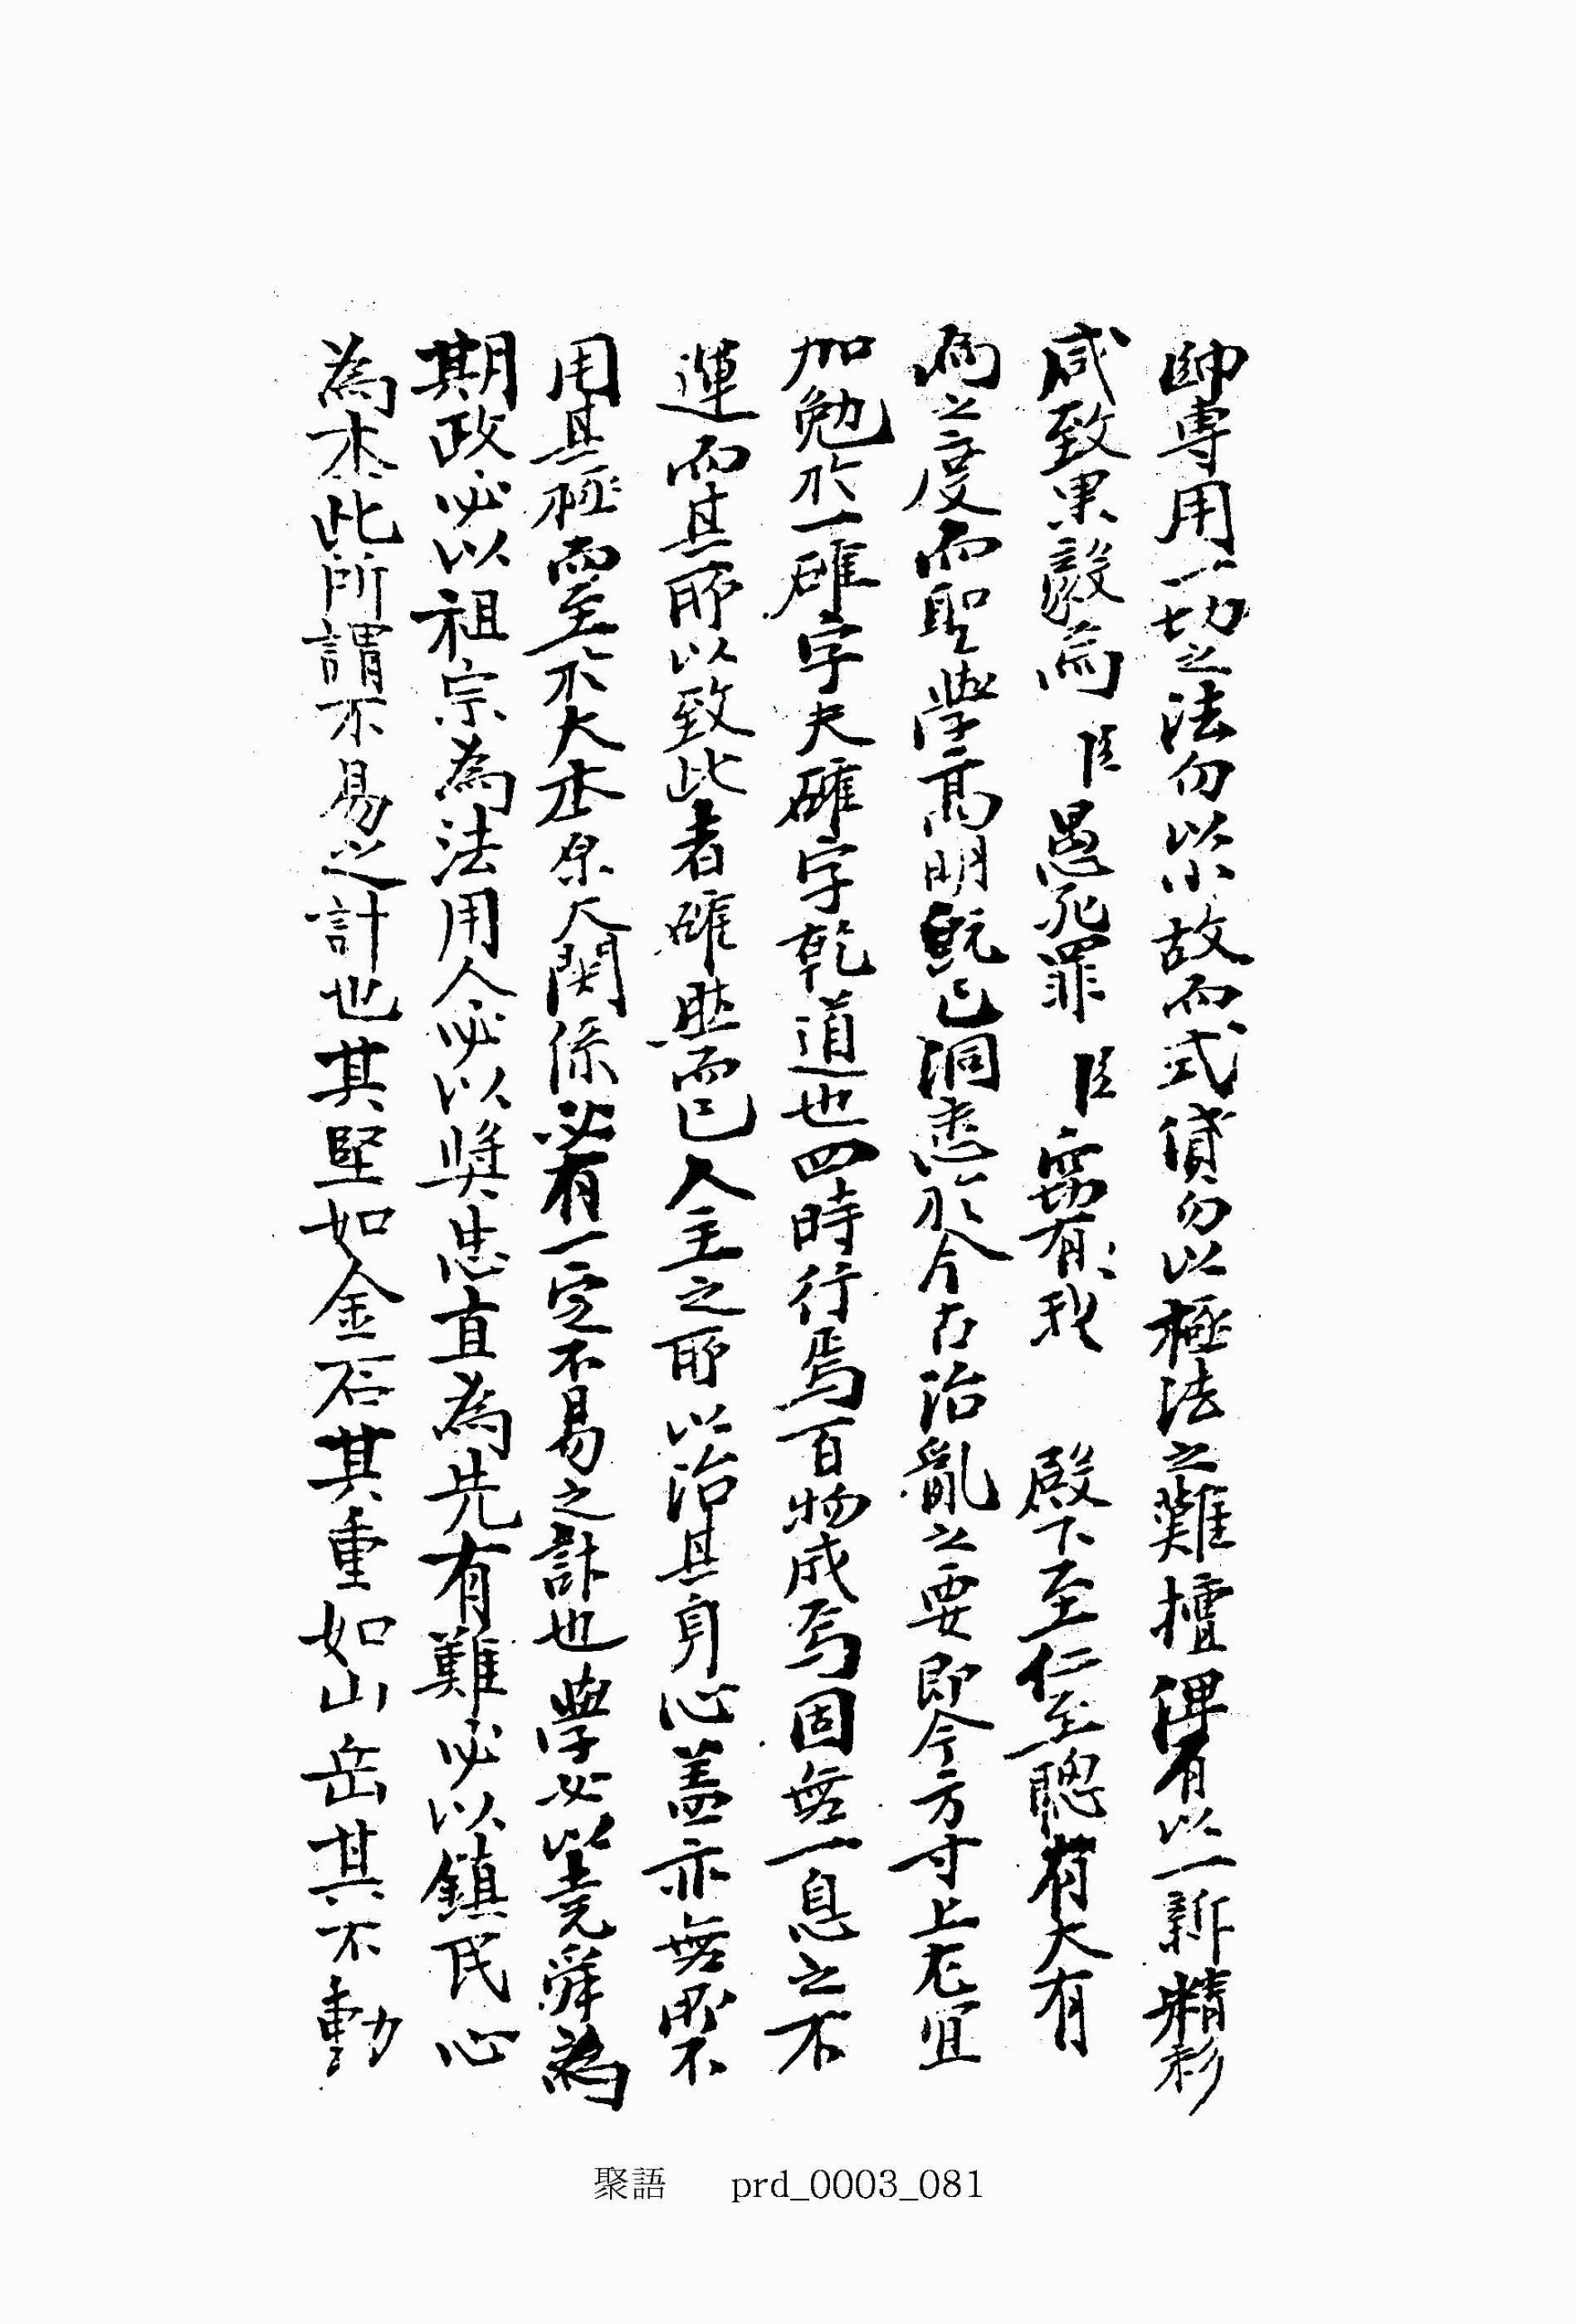 帥專用一切之法勿以小故而式貸勿以極法之難擅俾有以一新精彩
咸致果毅焉臣愚死罪臣竊有我殿下至仁至聰有大有
爲之度而聖學高明既已洞悉於今古治亂之要即今方寸上尤宜
加勉於一確字夫確字乾道也四時行焉百物成焉固無一息之不
運而其所以致此者確然而已人主之所以治其身心盖亦無所不
用其極而至於大本原大関係必有一定不易之計也學必以堯舜為
期政必以祖宗為法用人必以奬忠直為先有難必以鎮民心
為本此所謂不易之計也其堅如金石其重如山岳其不動
聚語 prd_0003_081